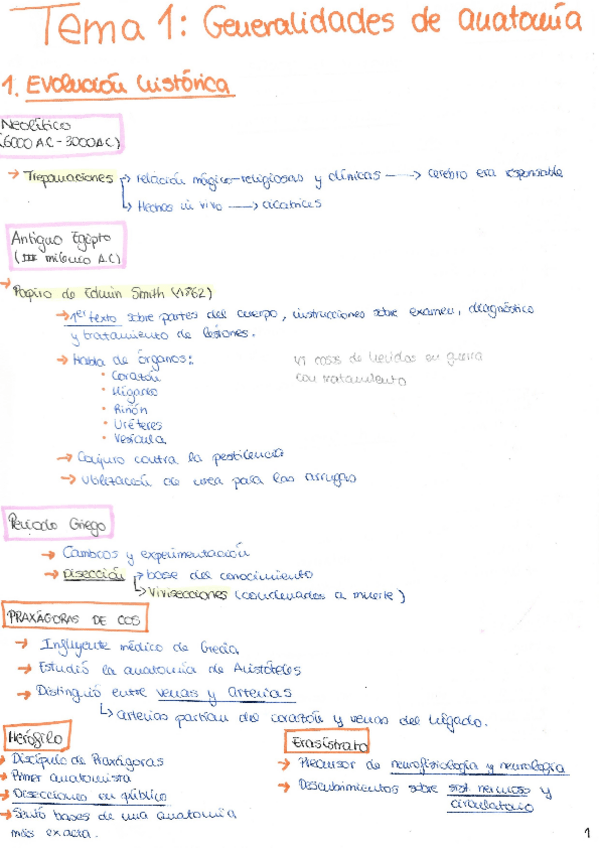 Tema 1: Generalidades de anatomía
1. Evolución histórica
Neolítico
(6000 A.C - 3000 A.C)
→ Trepanaciones → relación mágico-religiosas y clínicas → cerebro era responsable
↳ Hechas in vivo → cicatrices
Antiguo Egipto
(III milenio A.C)
→ Papiro de Edwin Smith (1862)
→ 1er texto sobre partes del cuerpo, instrucciones sobre examen, diagnóstico
y tratamiento de lesiones.
→ Habla de órganos:
• Corazón
• Hígado
• Riñón
• Uréteres
• Vesícula
47 casos de heridas en guerra
con tratamiento
→ Conjuro contra la pestilencia
→ Utilización de urea para las arrugas
Periodo Griego
→ Cambios y experimentación
→ Disección → base del conocimiento
↳ Vivisecciones (condenados a muerte)
PRAXÁGORAS DE COS
→ Influyente médico de Grecia
→ Estudió la anatomía de Aristóteles
→ Distinguió entre venas y arterias
↳ arterias partían del corazón y venas del hígado.
Herófilo
→ Discípulo de Praxágoras
→ Primer anatomista
→ Disecciones en público
→ Sentó bases de una anatomía
más exacta.
Erasístrato
→ Precursor de neurofisiología y neurología
→ Descubrimientos sobre sist. nervioso y
circulatorio
1